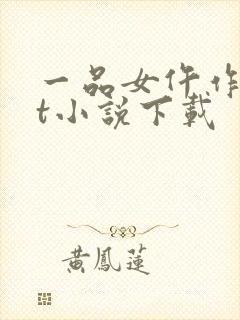 一品女仵作
t小說下載
黃鳳蓮